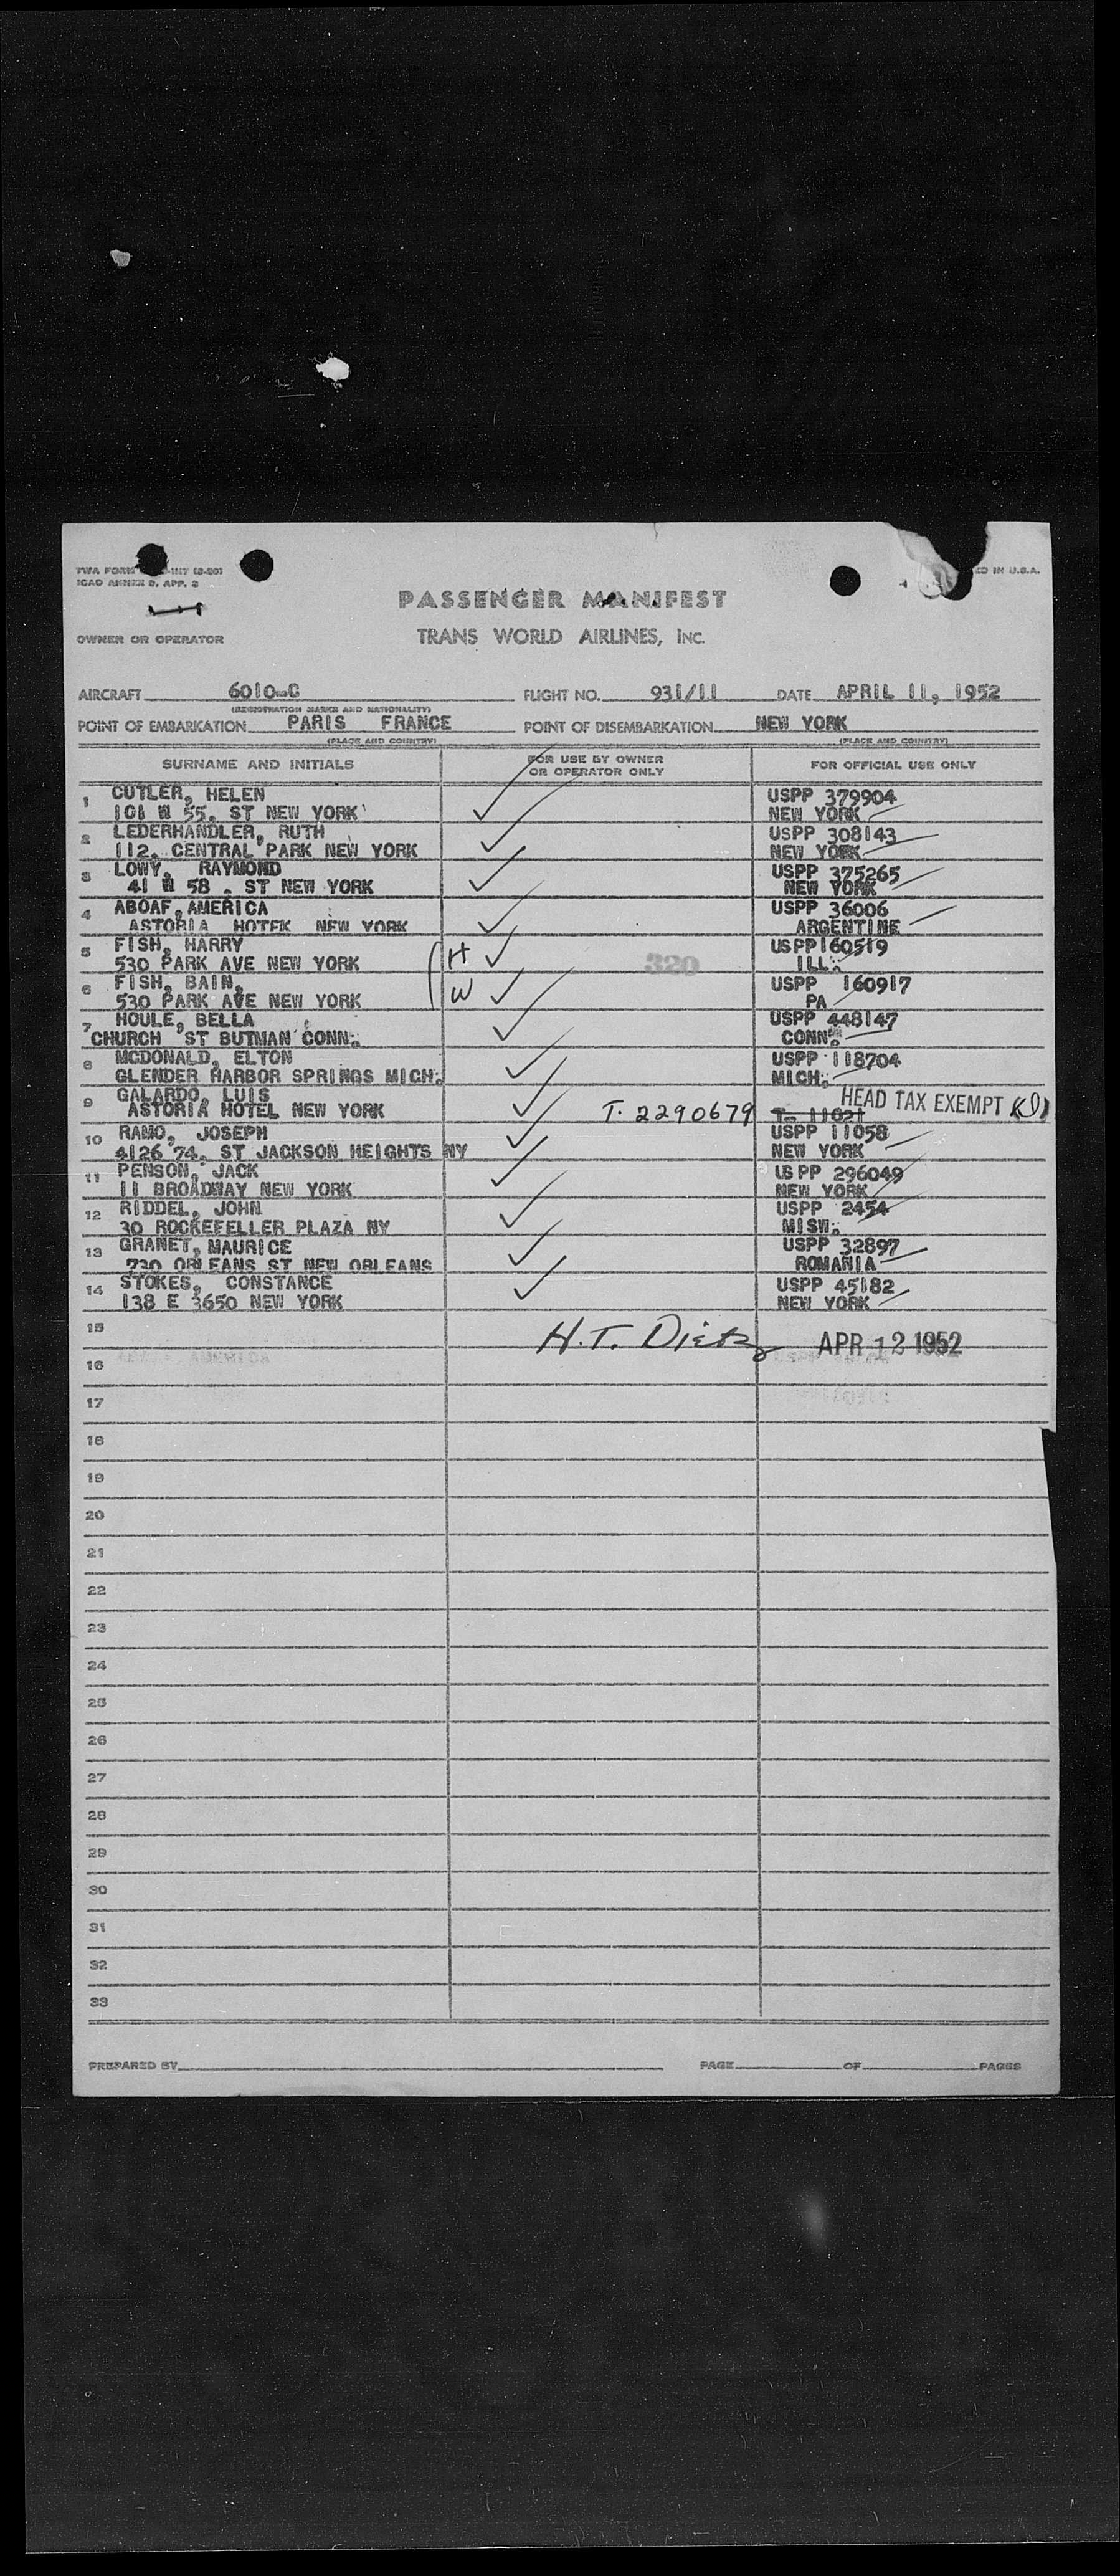 TWA FORM -INT (3-50)
ICAO ANNEX 9, APP. 2
ED IN U.S.A.
PASSENGER MANIFEST
OWNER OR OPERATOR TRANS WORLD AIRLINES, INC.
AIRCRAFT 6010-C FLIGHT NO. 931/11 DATE APRIL 11, 1952
(REGISTRATION MARKS AND NATIONALITY)
POINT OF EMBARKATION PARIS FRANCE POINT OF DISEMBARKATION NEW YORK
(PLACE AND COUNTRY) (PLACE AND COUNTRY)
SURNAME AND INITIALS FOR USE BY OWNER OR OPERATOR ONLY FOR OFFICIAL USE ONLY
1 CUTLER, HELEN USPP 379904
101 W 55. ST NEW YORK NEW YORK
2 LEDERHANDLER, RUTH USPP 308143
112. CENTRAL PARK NEW YORK NEW YORK
3 LOWY, RAYMOND USPP 375265
41 W 58 . ST NEW YORK NEW YORK
4 ABOAF, AMERICA USPP 36006
ASTORIA HOTEK NEW YORK ARGENTINE
5 FISH, HARRY H USPP160519
530 PARK AVE NEW YORK 320 ILL.
6 FISH, BAIN, W USPP 160917
530 PARK AVE NEW YORK PA
7 HOULE, BELLA USPP 448147
CHURCH ST BUTMAN CONN. CONN.
8 MCDONALD, ELTON USPP 118704
GLENDER HARBOR SPRINGS MICH. MICH.
9 GALARDO, LUIS HEAD TAX EXEMPT
ASTORIA HOTEL NEW YORK T. 2290679 T. 11021
10 RAMO, JOSEPH USPP 11058
4126 74. ST JACKSON HEIGHTS NY NEW YORK
11 PENSON, JACK US PP 296049
11 BROADWAY NEW YORK NEW YORK
12 RIDDEL, JOHN USPP 2454
30 ROCKEFELLER PLAZA NY MISW.
13 GRANET, MAURICE USPP 32897
730 ORLEANS ST NEW ORLEANS ROMANIA
14 STOKES, CONSTANCE USPP 45182
138 E 3650 NEW YORK NEW YORK
15 H.T. Dietz APR 12 1952
16
17
18
19
20
21
22
23
24
25
26
27
28
29
30
31
32
33
PREPARED BY PAGE OF PAGES